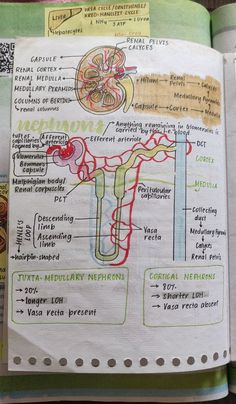 UREA CYCLE / ORNITHINE /
KREB-HANSLEIT CYCLE
Liver
hepatocytes
NH3
3 ATP
1 Urea
RENAL PELVIS
CALYCES
CAPSULE
RENAL CORTEX
RENAL MEDULLA
MEDULLARY PYRAMIDS
COLUMNS OF BERTINI
renal columns
Hilum → Renal Pelvis → Calyces
Medullary Pyramids
Capsule → Cortex → Medulla
nephrons
Anything remaining in Glomerulus is
carried by this i.e. blood
tuft of
capillaries
formed by
Afferent
arteriole
Efferent arteriole
Glomerulus
Bowman's
capsule
DCT
CORTEX
Malpighian body/
Renal Corpuscles
MEDULLA
PCT
Peritubular
capillaries
HENLE'S
LOOP
Descending
limb
Ascending
limb
Vasa
recta
Collecting
duct
Medullary Pyramids
Calyces
Renal Pelvis
→ hairpin-shaped
JUXTA-MEDULLARY NEPHRONS
→ 20%
→ longer LOH
→ Vasa recta present
CORTICAL NEPHRONS
→ 80%
→ shorter LOH
→ Vasa recta absent